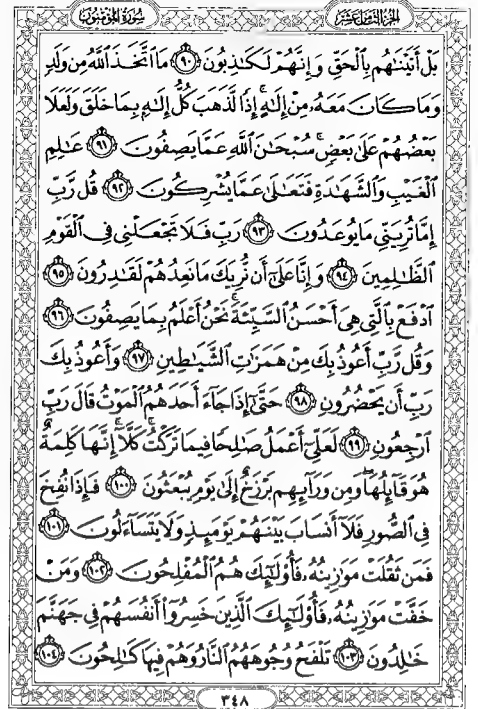 سُورَةُ المُؤْمِنُون
الجُزْءُ الثَّامِنَ عَشَرَ
بَلْ أَتَيْنَٰهُم بِٱلْحَقِّ وَإِنَّهُمْ لَكَٰذِبُونَ ٩٠ مَا ٱتَّخَذَ ٱللَّهُ مِن وَلَدٍ
وَمَا كَانَ مَعَهُۥ مِنْ إِلَٰهٍ ۚ إِذًا لَّذَهَبَ كُلُّ إِلَٰهٍۭ بِمَا خَلَقَ وَلَعَلَا
بَعْضُهُمْ عَلَىٰ بَعْضٍ ۚ سُبْحَٰنَ ٱللَّهِ عَمَّا يَصِفُونَ ٩١ عَٰلِمِ
ٱلْغَيْبِ وَٱلشَّهَٰدَةِ فَتَعَٰلَىٰ عَمَّا يُشْرِكُونَ ٩٢ قُل رَّبِّ
إِمَّا تُرِيَنِّى مَا يُوعَدُونَ ٩٣ رَبِّ فَلَا تَجْعَلْنِى فِى ٱلْقَوْمِ
ٱلظَّٰلِمِينَ ٩٤ وَإِنَّا عَلَىٰٓ أَن نُّرِيَكَ مَا نَعِدُهُمْ لَقَٰدِرُونَ ٩٥
ٱدْفَعْ بِٱلَّتِى هِىَ أَحْسَنُ ٱلسَّيِّئَةَ ۚ نَحْنُ أَعْلَمُ بِمَا يَصِفُونَ ٩٦
وَقُل رَّبِّ أَعُوذُ بِكَ مِنْ هَمَزَٰتِ ٱلشَّيَٰطِينِ ٩٧ وَأَعُوذُ بِكَ
رَبِّ أَن يَحْضُرُونِ ٩٨ حَتَّىٰٓ إِذَا جَآءَ أَحَدَهُمُ ٱلْمَوْتُ قَالَ رَبِّ
ٱرْجِعُونِ ٩٩ لَعَلِّىٓ أَعْمَلُ صَٰلِحًا فِيمَا تَرَكْتُ ۚ كَلَّآ ۚ إِنَّهَا كَلِمَةٌ
هُوَ قَآئِلُهَا ۖ وَمِن وَرَآئِهِم بَرْزَخٌ إِلَىٰ يَوْمِ يُبْعَثُونَ ١٠٠ فَإِذَا نُفِخَ
فِى ٱلصُّورِ فَلَآ أَنسَابَ بَيْنَهُمْ يَوْمَئِذٍ وَلَا يَتَسَآءَلُونَ ١٠١
فَمَن ثَقُلَتْ مَوَٰزِينُهُۥ فَأُو۟لَٰٓئِكَ هُمُ ٱلْمُفْلِحُونَ ١٠٢ وَمَنْ
خَفَّتْ مَوَٰزِينُهُۥ فَأُو۟لَٰٓئِكَ ٱلَّذِينَ خَسِرُوٓا۟ أَنفُسَهُمْ فِى جَهَنَّمَ
خَٰلِدُونَ ١٠٣ تَلْفَحُ وُجُوهَهُمُ ٱلنَّارُ وَهُمْ فِيهَا كَٰلِحُونَ ١٠٤
٣٤٨